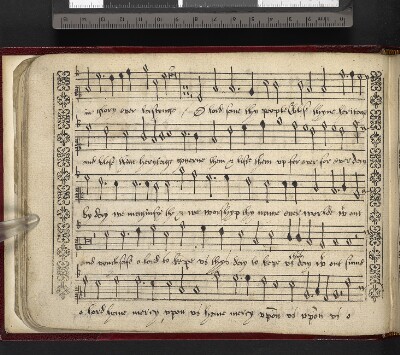 in glory ever lastinge / O lord save thy people & bless thyne heritage
and bless thine heritage governe them & lift them up for ever for ever day
by day we magnify the & we worship thy name ever world without
and vouchsafe o lord to kepe us thys day to kepe us thys day without sinne
o lord have mercy upon us have mercy upon us upon us o